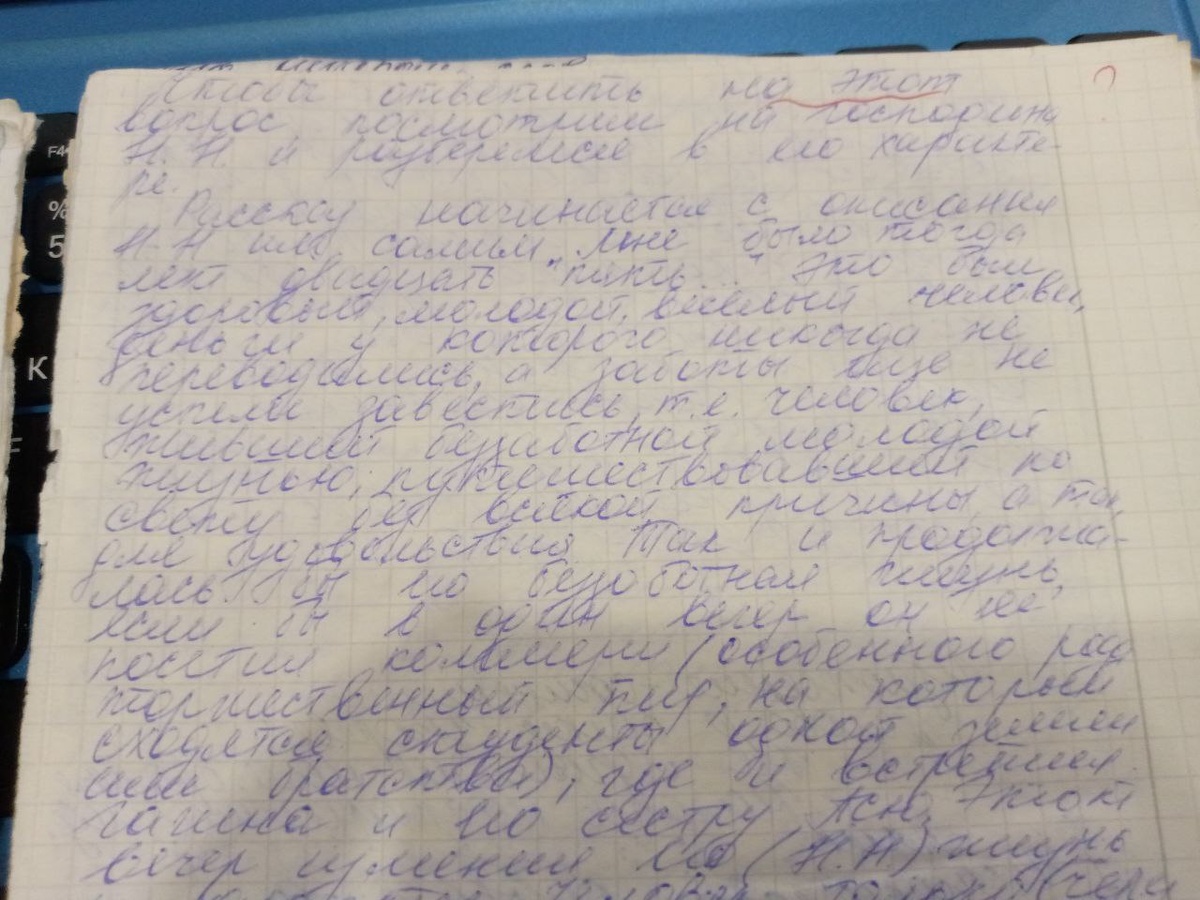 Чтобы ответить на этот
вопрос, посмотрим на господина
Н. Н. и разберемся в его характе-
ре.
Рассказ начинается с описания
Н. Н им самим „Мне было тогда
лет двадцать пять..." Это был
здоровый, молодой, веселый человек,
деньги у которого никогда не
переводились, а заботы еще не
успели завестись, т.е. человек,
живший беззаботной молодой
жизнью, путешествовавший по
свету без всякой причины, а так,
для удовольствия Так и продолжа-
лась бы его беззаботная жизнь,
если бы в один вечер он не
посетил коммерш (особенного рода
торжественный пир, на который
сходятся студенты одной земли
или братства), где и встретил
Гагина и его сестру Асю. Этот
вечер изменил его (Н.Н) жизнь
только
F4
%
5
К